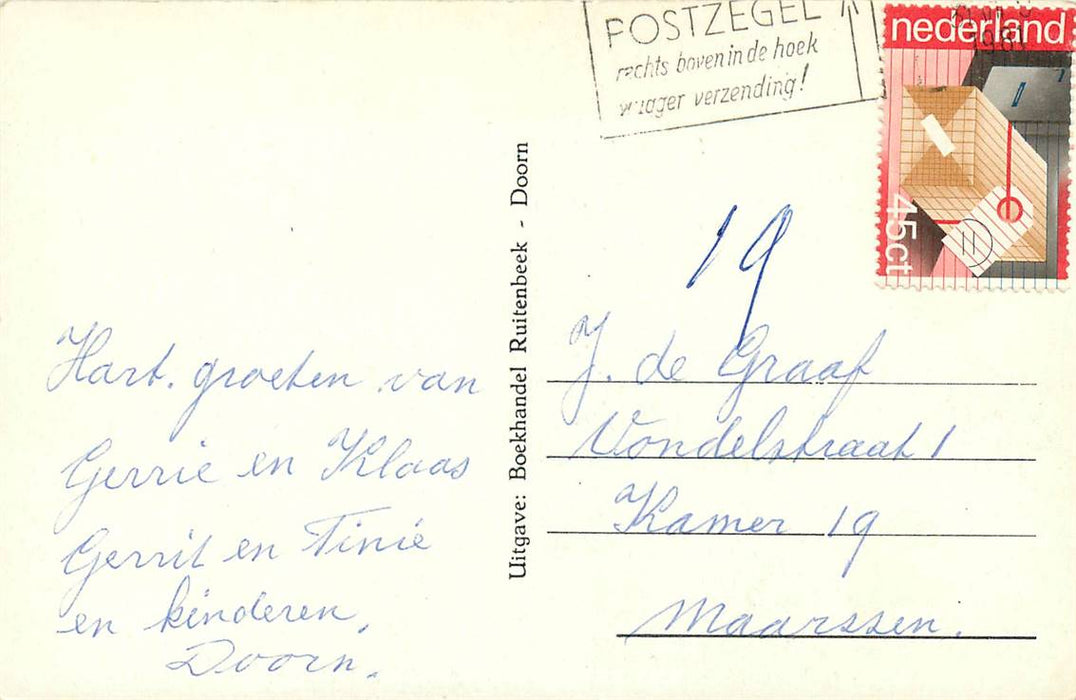 POSTZEGEL
rechts boven in de hoek
vlugger verzending!
nederland
45ct
19
Hart. groeten van
Gerrie en Klaas
Gerrit en Tinie
en kinderen,
Doorn.
Uitgave: Boekhandel Ruitenbeek - Doorn
J. de Graaf
Vondelstraat 1
Kamer 19
Maarssen.